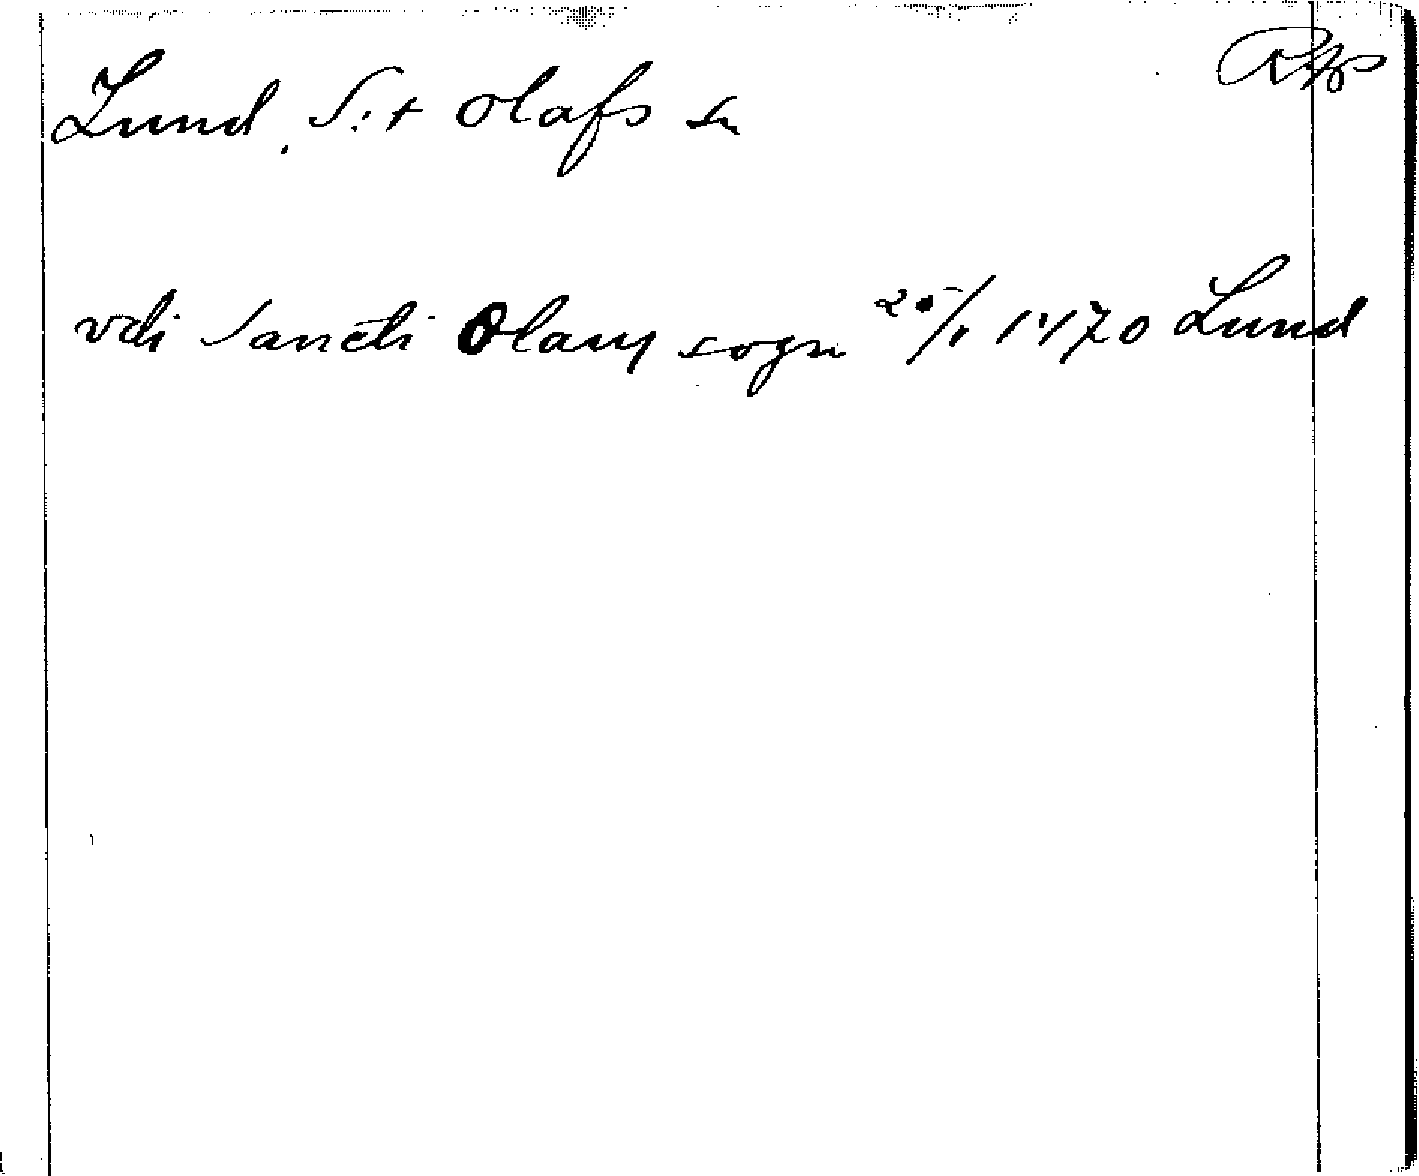 Lund, S:t Olafs sn
vdi Sancti Olauy sogn 25/1 1470 Lund